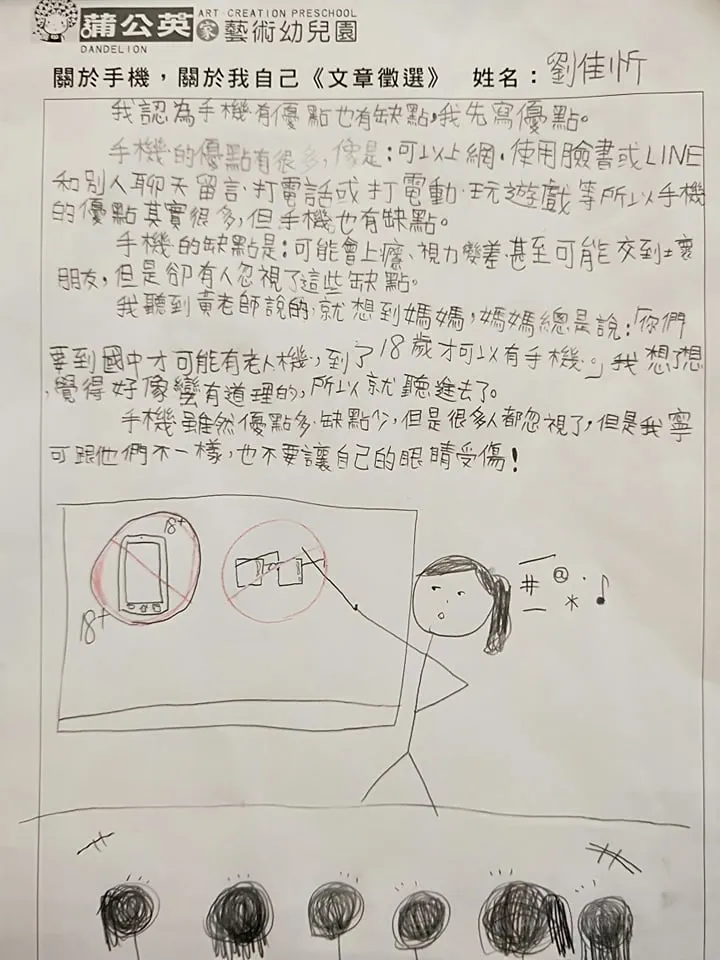 ART CREATION PRESCHOOL
蒲公英家藝術幼兒園
DANDELION
關於手機，關於我自己《文章徵選》 姓名：劉佳忻
我認為手機有優點也有缺點，我先寫優點。
手機的優點有很多，像是：可以上網．使用臉書或LINE
和別人聊天留言．打電話或打電動．玩遊戲等所以手機
的優點其實很多，但手機也有缺點。
手機的缺點是：可能會上癮、視力變差甚至可能交到壞
朋友，但是卻有人忽視了這些缺點。
我聽到黃老師說的，就想到媽媽，媽媽總是說：「你們
要到國中才可能有老人機，到了18歲才可以有手機。」我想了想
，覺得好像蠻有道理的，所以就聽進去了。
手機雖然優點多．缺點少，但是很多人都忽視了，但是我寧
可跟他們不一樣，也不要讓自己的眼睛受傷！
18+
18+
# @ . * ♪